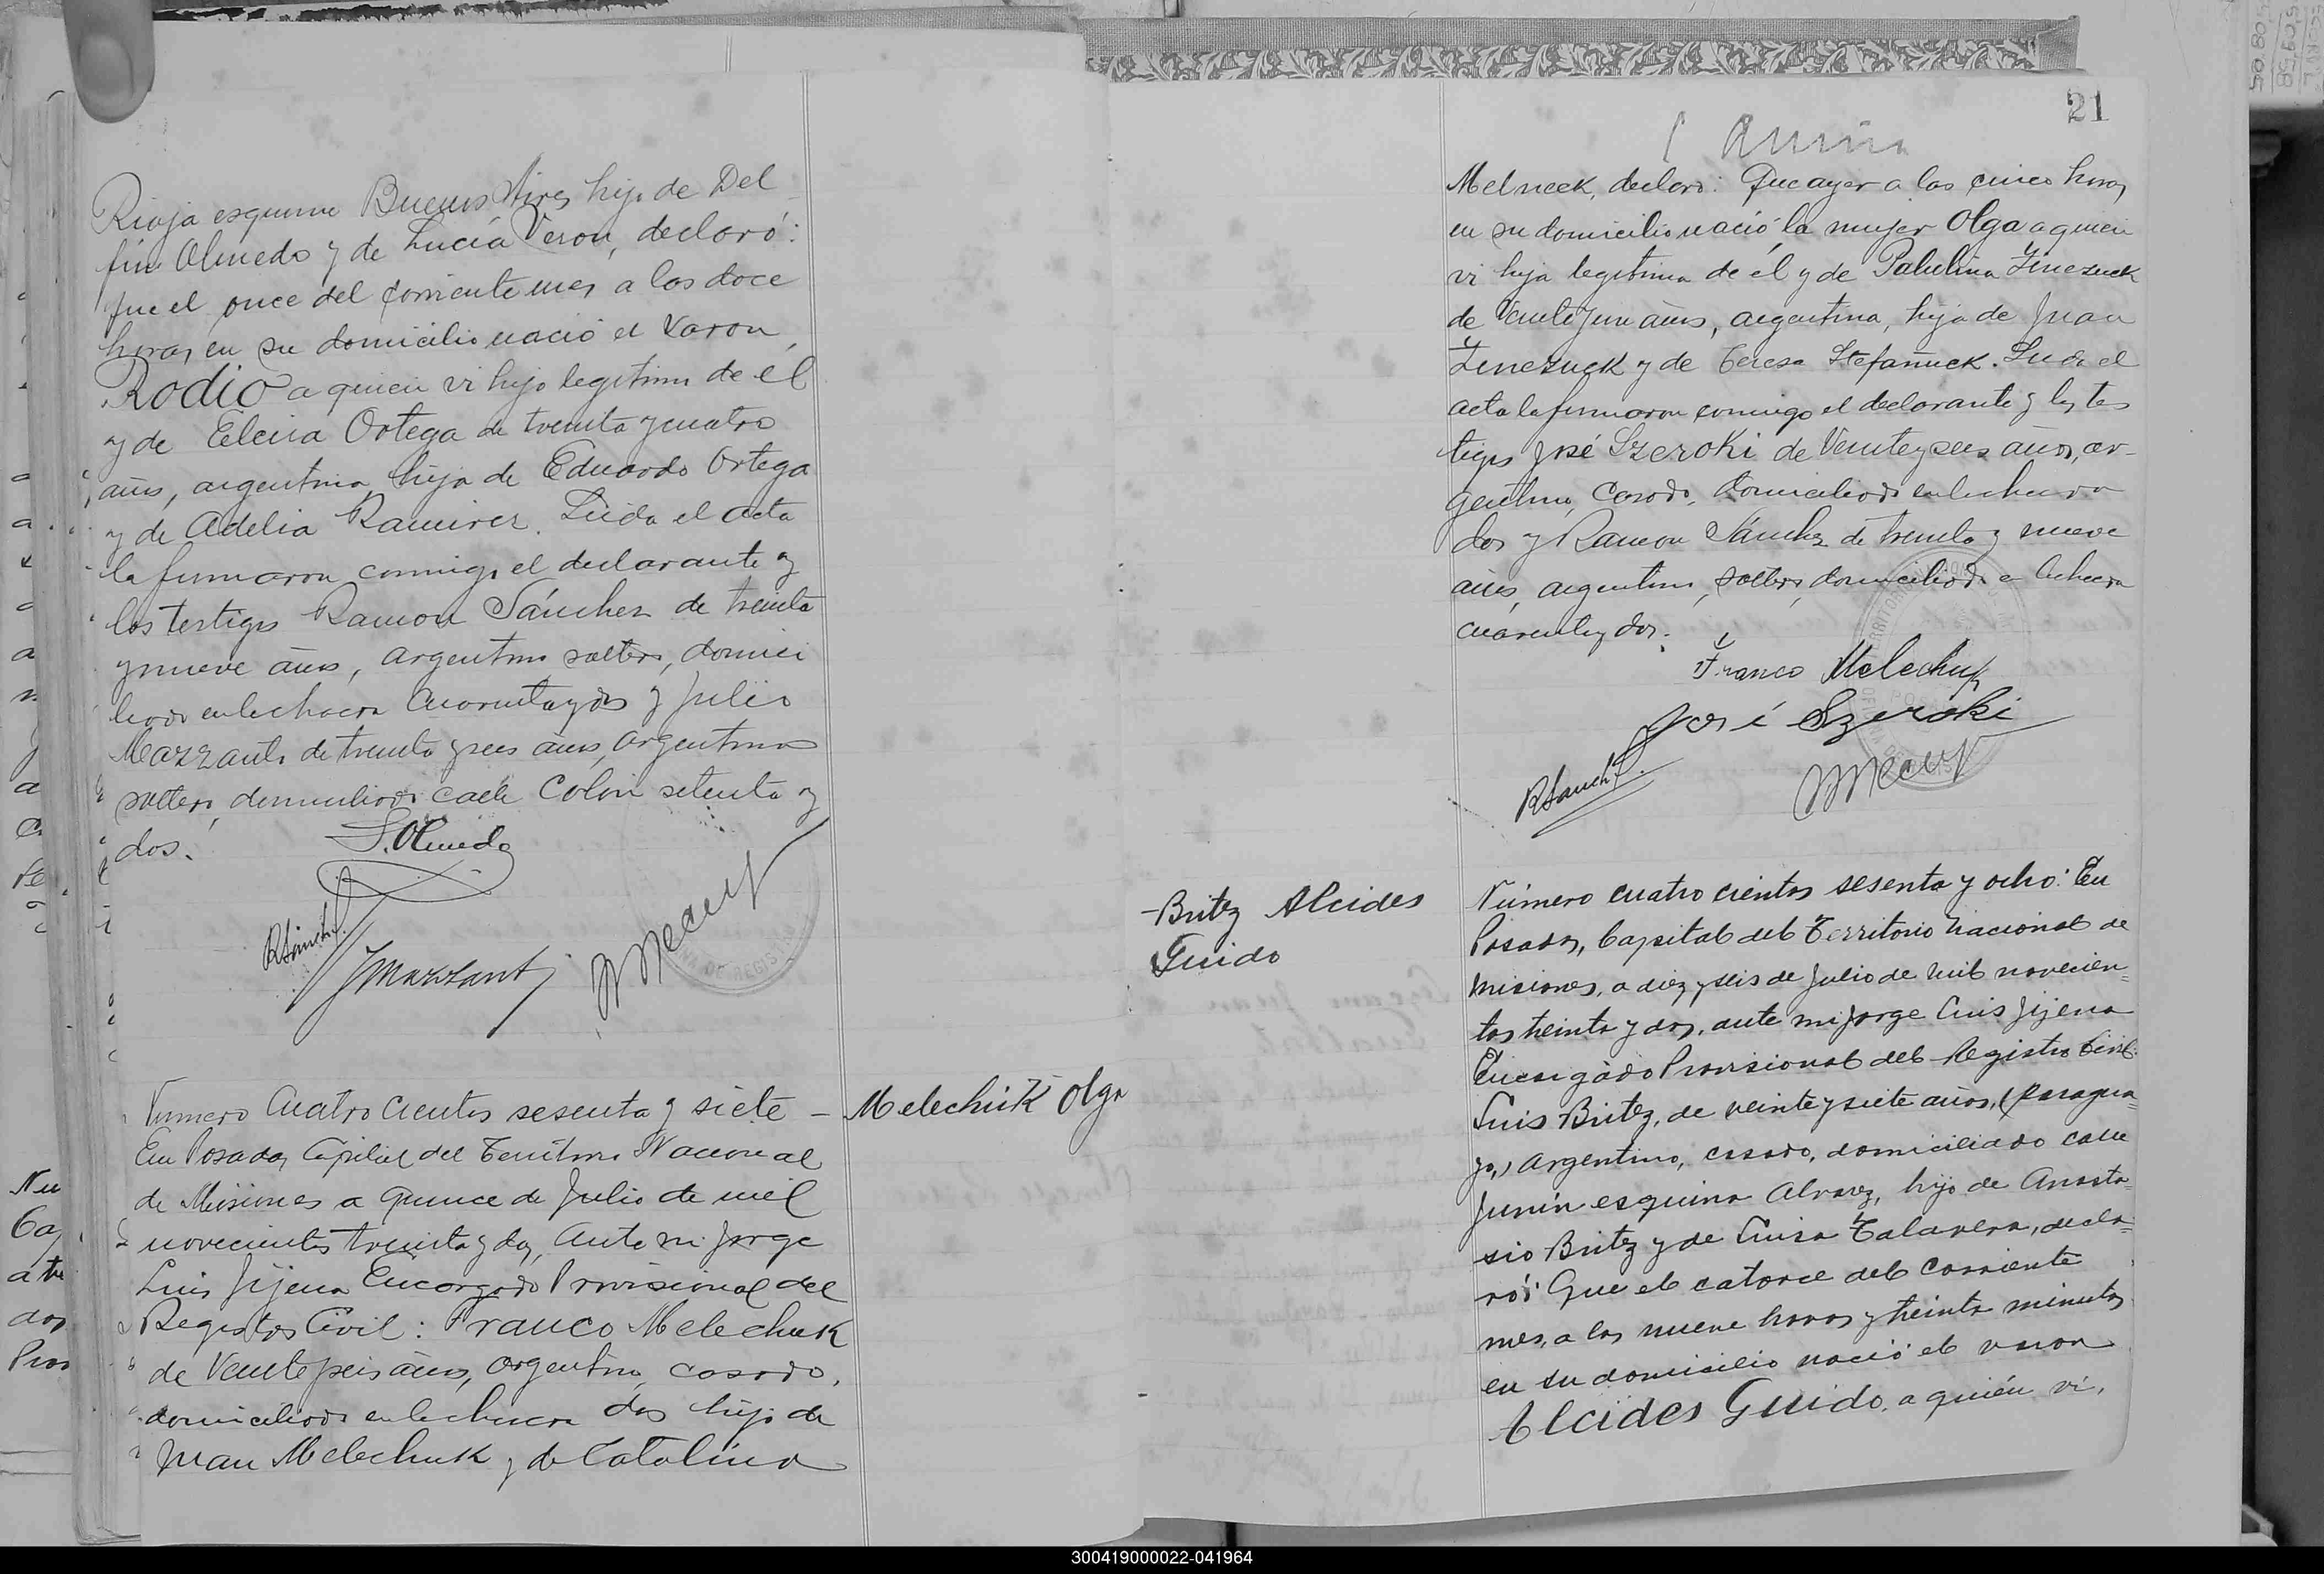 Rioja esquina Buenos Aires, hijo de Del
fín Olmedo y de Lucía Veron, declaró:
que el once del corriente mes a las doce
horas, en su domicilio nació el varon,
Rodio a quien vi hijo legitimo de él
y de Elcira Ortega de treinta y cuatro
años, argentina, hija de Eduardo Ortega
y de Adelia Ramirez. Leida el acta
la firmaron conmigo el declarante y
los testigos Ramon Sánchez de treinta
y nueve años, argentino, soltero, domici
liado en la chacra cuarenta y dos y Julio
Mazzanti de treinta y seis años, argentino
soltero, domiciliado calle Colón setenta y
dos.
S. Olmedo
RSánchez
JMazzanti
Número Cuatrocientos sesenta y siete –
En Posadas, Capital del Territorio Nacional
de Misiones a quince de Julio de mil
novecientos treinta y dos, Ante mi Jorge
Luis Jijena Encargado Provisional del
Registro Civil: Franco Melechuk
de Veinte y seis años, argentino, casado,
domiciliado en la chacra dos hijo de
Juan Melechuk y de Catalina
Melechuk Olga
21
Melneek, declaró: Que ayer a las cinco horas,
en su domicilio nació la mujer Olga a quien
vi hija legitima de él y de Palulina Zinezuck
de Veinte y un años, argentina, hija de Juan
Zinezuck y de Teresa Stefañuck. Leida el
acta la firmaron conmigo el declarante y los tes
tigos José Szeroki de Veinte y seis años, ar-
gentino, casado, domiciliado en la chacra
dos y Ramon Sánchez de treinta y nueve
años, argentino, soltero, domiciliado en la chacra
cuarenta y dos.
Franco Melechuk
José Szeroki
RSánchez
Britez Alcides
Guido
Número cuatrocientos sesenta y ocho: En
Posadas, Capital del Territorio Nacional de
Misiones, a diez y seis de Julio de mil novecien=
tos treinta y dos, ante mi Jorge Luis Jijena
Encargado Provisional del Registro Civil:
Luis Britez, de veinte y siete años, (paragua=
yo,) argentino, casado, domiciliado calle
Junín esquina Alvarez, hijo de Anasta=
sio Britez y de Luisa Talavera, decla=
ró: Que el catorce del corriente
mes, a las nueve horas y treinta minutos
en su domicilio nació el varon
Alcides Guido, a quién vi,
300419000022-041964